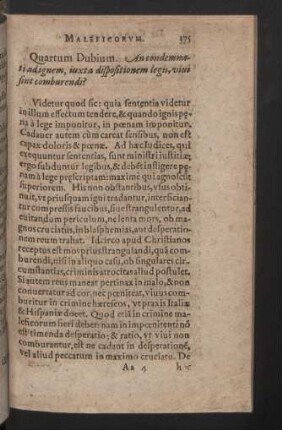 MALEFICORVM. 375
Quartum Dubium. An condemna-
ti ad ignem, iuxta dispositionem legis, viui
sint comburendi?
Videtur quod sic: quia sententia videtur
in illum effectum tendere, & quando ignis pœ-
na à lege imponitur, in pœnam imponitur.
Cadauer autem cùm careat sensibus, non est
capax doloris & pœnæ. Ad hæc Iudices, qui
exequuntur sententias, sunt ministri iustitiæ;
ergo subduntur legibus, & debẽt infligere pœ-
nam à lege præscriptam: maximè qui agnoscit
superiorem. His non obstantibus, vsus obti-
nuit, vt priusquam igni tradantur, interfician-
tur compressis faucibus, siue strangulentur, ad
euitandum periculum, ne lenta mors, ob ma-
gnos cruciatus, in blasphemias, aut desperatio-
nem reum trahat. Idcirco apud Christianos
receptus est mos prius strangulandi, quàm com-
burendi, nisi in aliquo casu, ob singulares cir-
cumstantias, criminis atrocitas aliud postulet.
Si autem reus maneat pertinax in malo, & non
conuersatur ad cor, nec pœniteat, viuus com-
buritur in crimine hæreseos, vt praxis Italiæ
& Hispaniæ docet. Quod etiã in crimine ma-
leficorum fieri deberet nam in impœnitenti nõ
est timenda desperatio; & ratio, vt viui non
comburantur, est ne cadant in desperationẽ,
vel aliud peccatum in maximo cruciatu. De
Aa 4